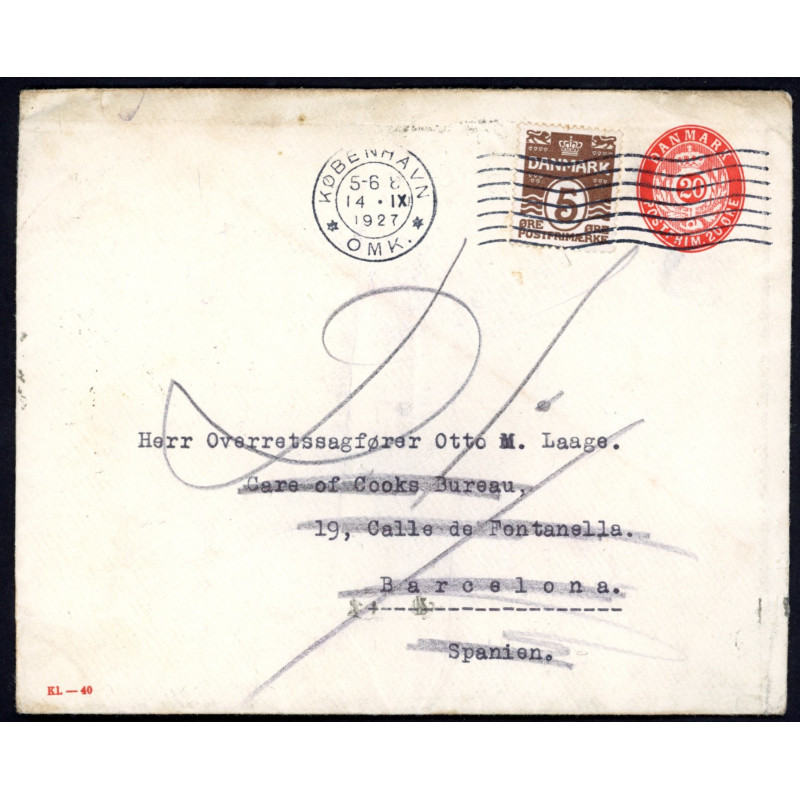 KØBENHAVN
5-6 E
14 · IX
1927
* OMK. *
DANMARK
5
ØRE ØRE
POSTFRIMÆRKE
DANMARK
20
POST·FRIM. 20 ØRE
Herr Overretssagfører Otto M. Laage.
Care of Cooks Bureau,
19, Calle de Fontanella.
Barcelona.
Spanien.
Kl. — 40